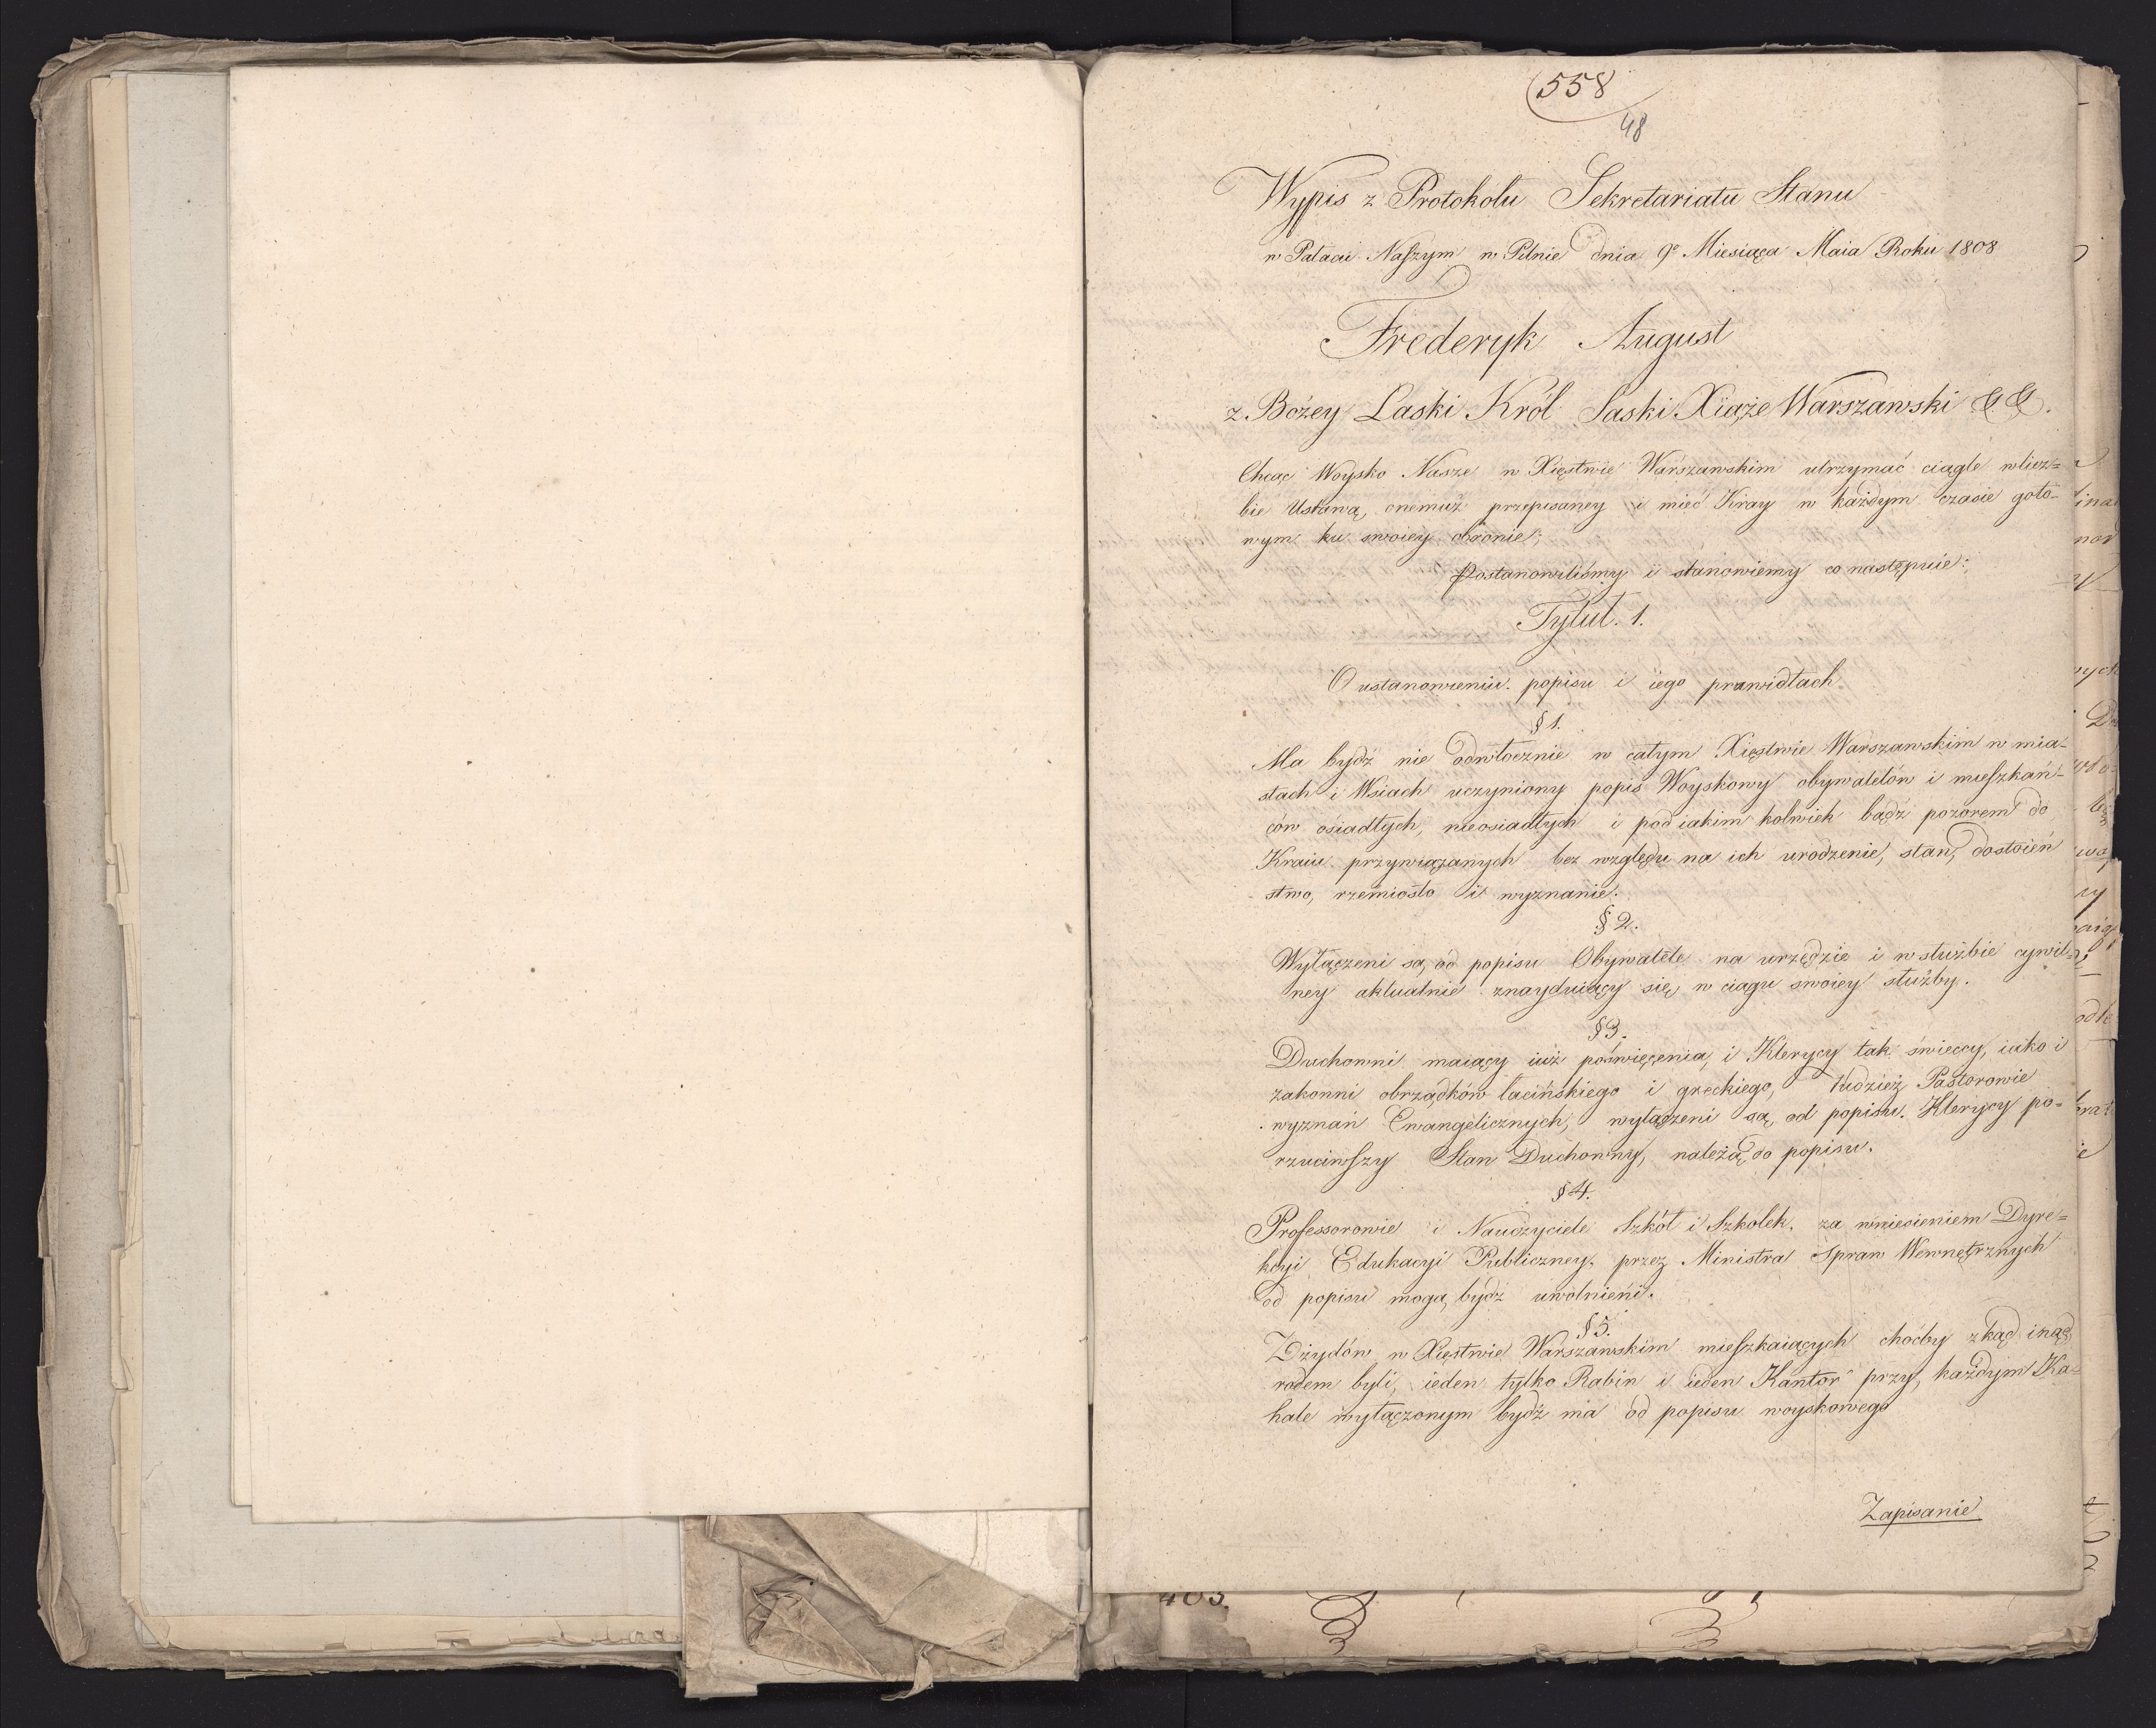 558
48
Wypis z Protokołu Sekretariatu Stanu
w Pałacu Naszym w Pilnie dnia 9º Miesiąca Maia Roku 1808
Frederyk August
z Bożey Łaski Król Saski Xiąże Warszawski & &.
Chcąc Woysko Nasze w Xięstwie Warszawskim utrzymać ciągle w licz=
bie Ustawą onemuż przepisaney i mieć Kray w każdym czasie goto-
wym ku swoiey obronie;
Postanowiliśmy i stanowiemy co następuie:
Tytuł. 1.
O ustanowieniu popisu i iego prawidłach.
§ 1.
Ma bydź nie odwłocznie w całym Xięstwie Warszawskim w mia-
stach i Wsiach uczyniony popis Woyskowy obywatelów i mieszkań-
ców osiadłych, nieosiadłych i pod iakim kolwiek bądź pozorem do
Kraiu przywiązanych bez względu na ich urodzenie, stan, dostoień
stwo, rzemiosło i wyznanie.
§ 2.
Wyłączeni są od popisu Obywatele na urzędzie i w służbie cywil-
ney aktualnie znayduiący się w ciągu swoiey służby.
§ 3.
Duchowni maiący iuż poświęcenia, i Klerycy tak świeccy, iako i
zakonni obrządków łacińskiego i greckiego, tudzież Pastorowie
wyznań Ewangelicznych, wyłączeni są od popisu. Klerycy po=
rzuciwszy Stan Duchowny, należą do popisu.
§ 4.
Professorowie i Nauczyciele Szkół i Szkółek, za wniesieniem Dyre=
kcyi Edukacyi Publiczney, przez Ministra Spraw Wewnętrznych
od popisu mogą bydź uwolnieni.
§ 5.
Z Żydów w Xięstwie Warszawskim mieszkaiących choćby zkąd inąd
rodem byli, ieden tylko Rabin i ieden Kantor przy każdym Ka=
hale wyłączonym bydź ma od popisu woyskowego
Zapisanie
403.